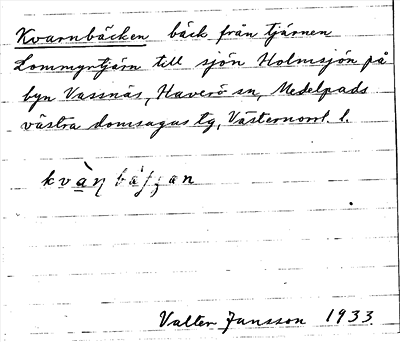 Kvarnbäcken bäck från tjärnen
Lommyrtjärn till sjön Holmsjön på
byn Vassnäs, Haverö sn, Medelpads
västra domsagas tg, Västernorrl. l.
Valter Jansson 1933